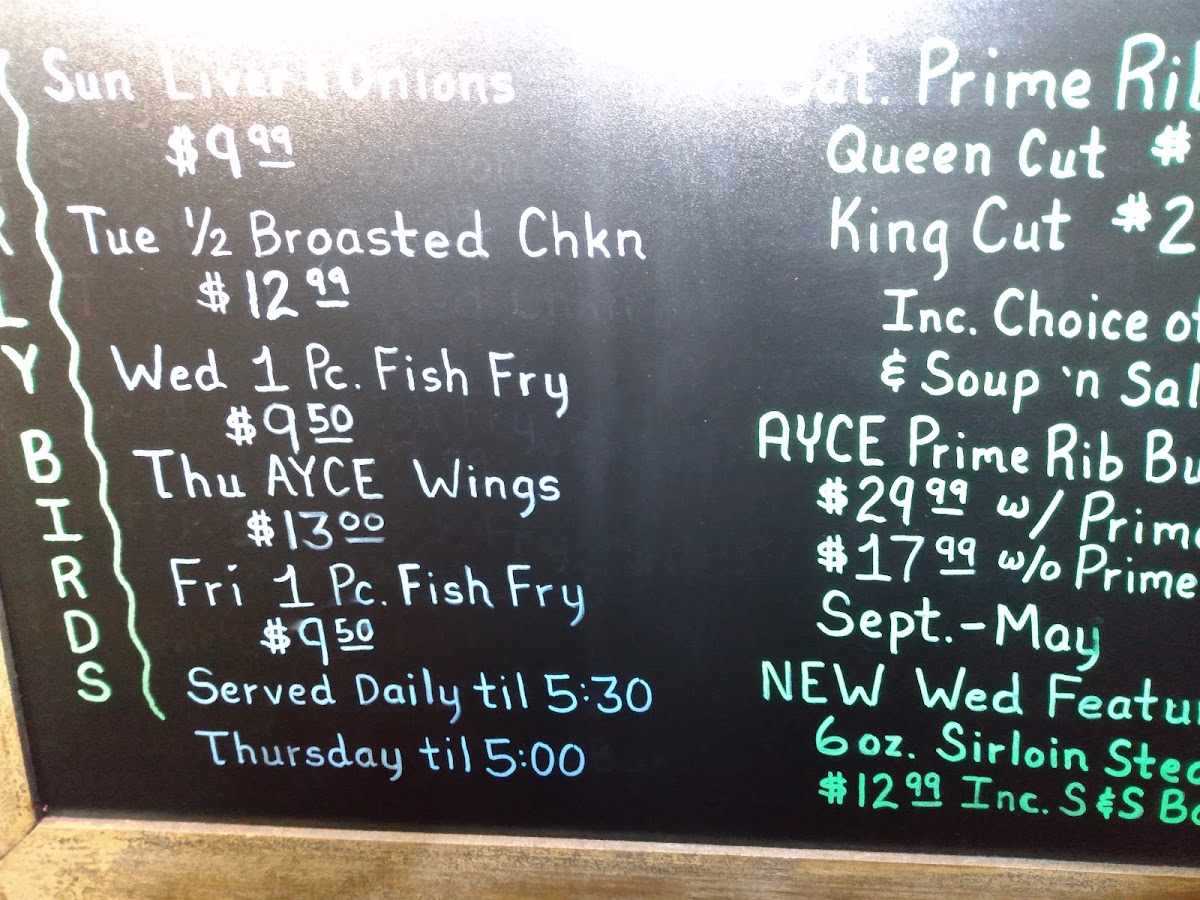 Sun Liver & Onions
$9.99
Tue 1/2 Broasted Chkn
$12.99
Wed 1 Pc. Fish Fry
$9.50
Thu AYCE Wings
$13.00
Fri 1 Pc. Fish Fry
$9.50
Served Daily til 5:30
Thursday til 5:00
LY BIRDS
Sat. Prime Rib
Queen Cut $
King Cut $2
Inc. Choice of
& Soup 'n Sal
AYCE Prime Rib Bu
$29.99 w/ Prime
$17.99 w/o Prime
Sept.-May
NEW Wed Featu
6 oz. Sirloin Stea
$12.99 Inc. S&S Ba